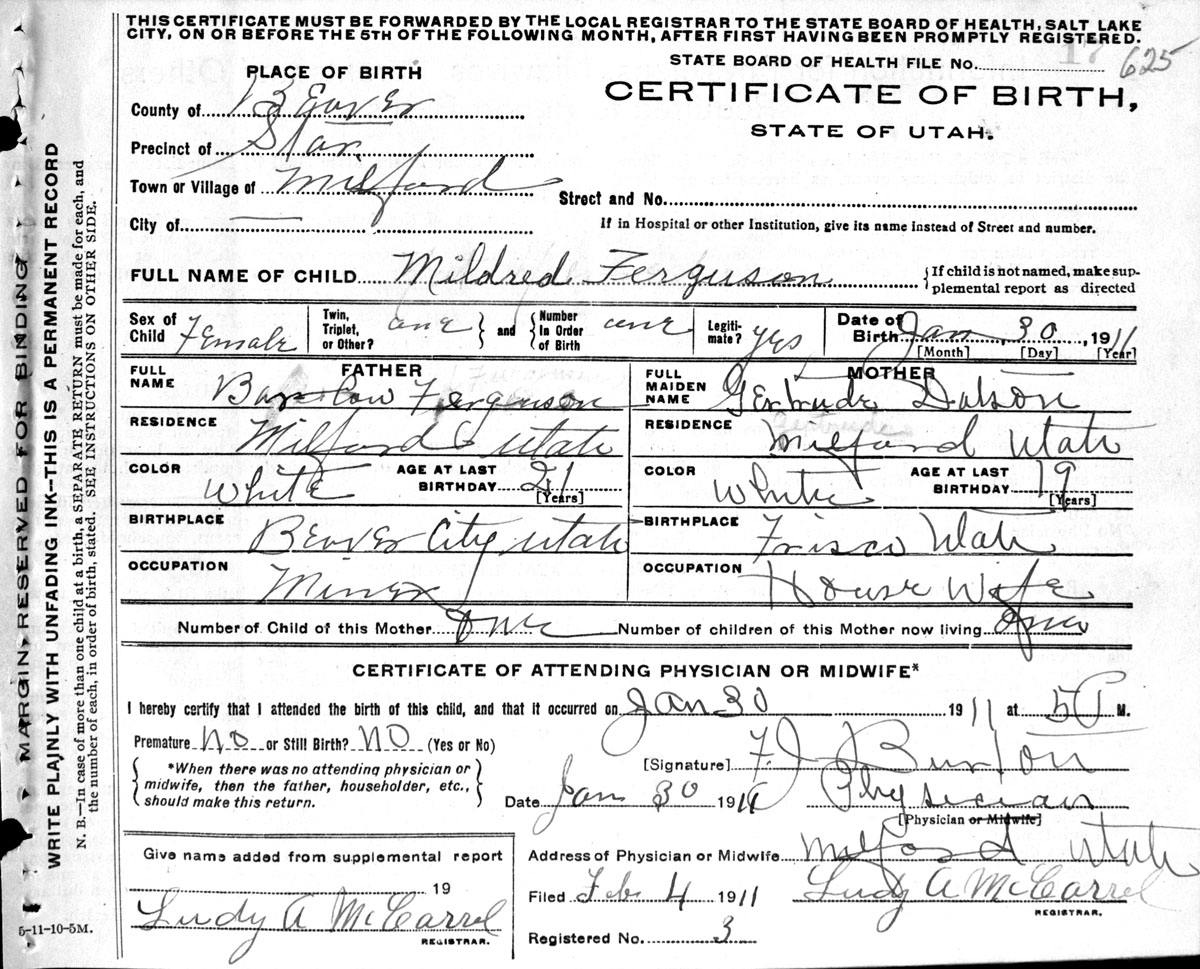 THIS CERTIFICATE MUST BE FORWARDED BY THE LOCAL REGISTRAR TO THE STATE BOARD OF HEALTH, SALT LAKE
CITY, ON OR BEFORE THE 5TH OF THE FOLLOWING MONTH, AFTER FIRST HAVING BEEN PROMPTLY REGISTERED.
STATE BOARD OF HEALTH FILE No. 17 625
PLACE OF BIRTH
CERTIFICATE OF BIRTH,
STATE OF UTAH.
County of Beaver
Precinct of Star
Town or Village of Milford
Street and No.
City of
If in Hospital or other Institution, give its name instead of Street and number.
FULL NAME OF CHILD Mildred Ferguson {If child is not named, make sup-
plemental report as directed
Sex of Child Female Twin, Triplet, or Other? one } and { Number In Order of Birth one Legiti-mate? Yes Date of Birth Jan 30, 1911
[Month] [Day] [Year]
FATHER MOTHER
FULL NAME Barlow Ferguson FULL MAIDEN NAME Gertrude Dotson
Gertrude
RESIDENCE Milford Utah RESIDENCE Milford Utah
COLOR White AGE AT LAST BIRTHDAY 21 [Years] COLOR White AGE AT LAST BIRTHDAY 19 [Years]
BIRTHPLACE Beaver City Utah BIRTHPLACE Frisco Utah
OCCUPATION Miner OCCUPATION House Wife
Number of Child of this Mother One Number of children of this Mother now living One
CERTIFICATE OF ATTENDING PHYSICIAN OR MIDWIFE*
I hereby certify that I attended the birth of this child, and that it occurred on Jan 30 1911 at 5 P M.
Premature No or Still Birth? No (Yes or No)
[Signature] F. J. Burton
{ *When there was no attending physician or
midwife, then the father, householder, etc.,
should make this return. }
Date Jan 30 1911 Physician
[Physician or Midwife]
Give name added from supplemental report
Address of Physician or Midwife Milford Utah
19
Filed Feb 4 1911 Ludy A McCarrel
REGISTRAR.
Ludy A McCarrel
REGISTRAR.
Registered No. 3
5-11-10-5M.
MARGIN RESERVED FOR BINDING
WRITE PLAINLY WITH UNFADING INK—THIS IS A PERMANENT RECORD
N. B.—In case of more than one child at a birth, a SEPARATE RETURN must be made for each, and
the number of each, in order of birth, stated. SEE INSTRUCTIONS ON OTHER SIDE.